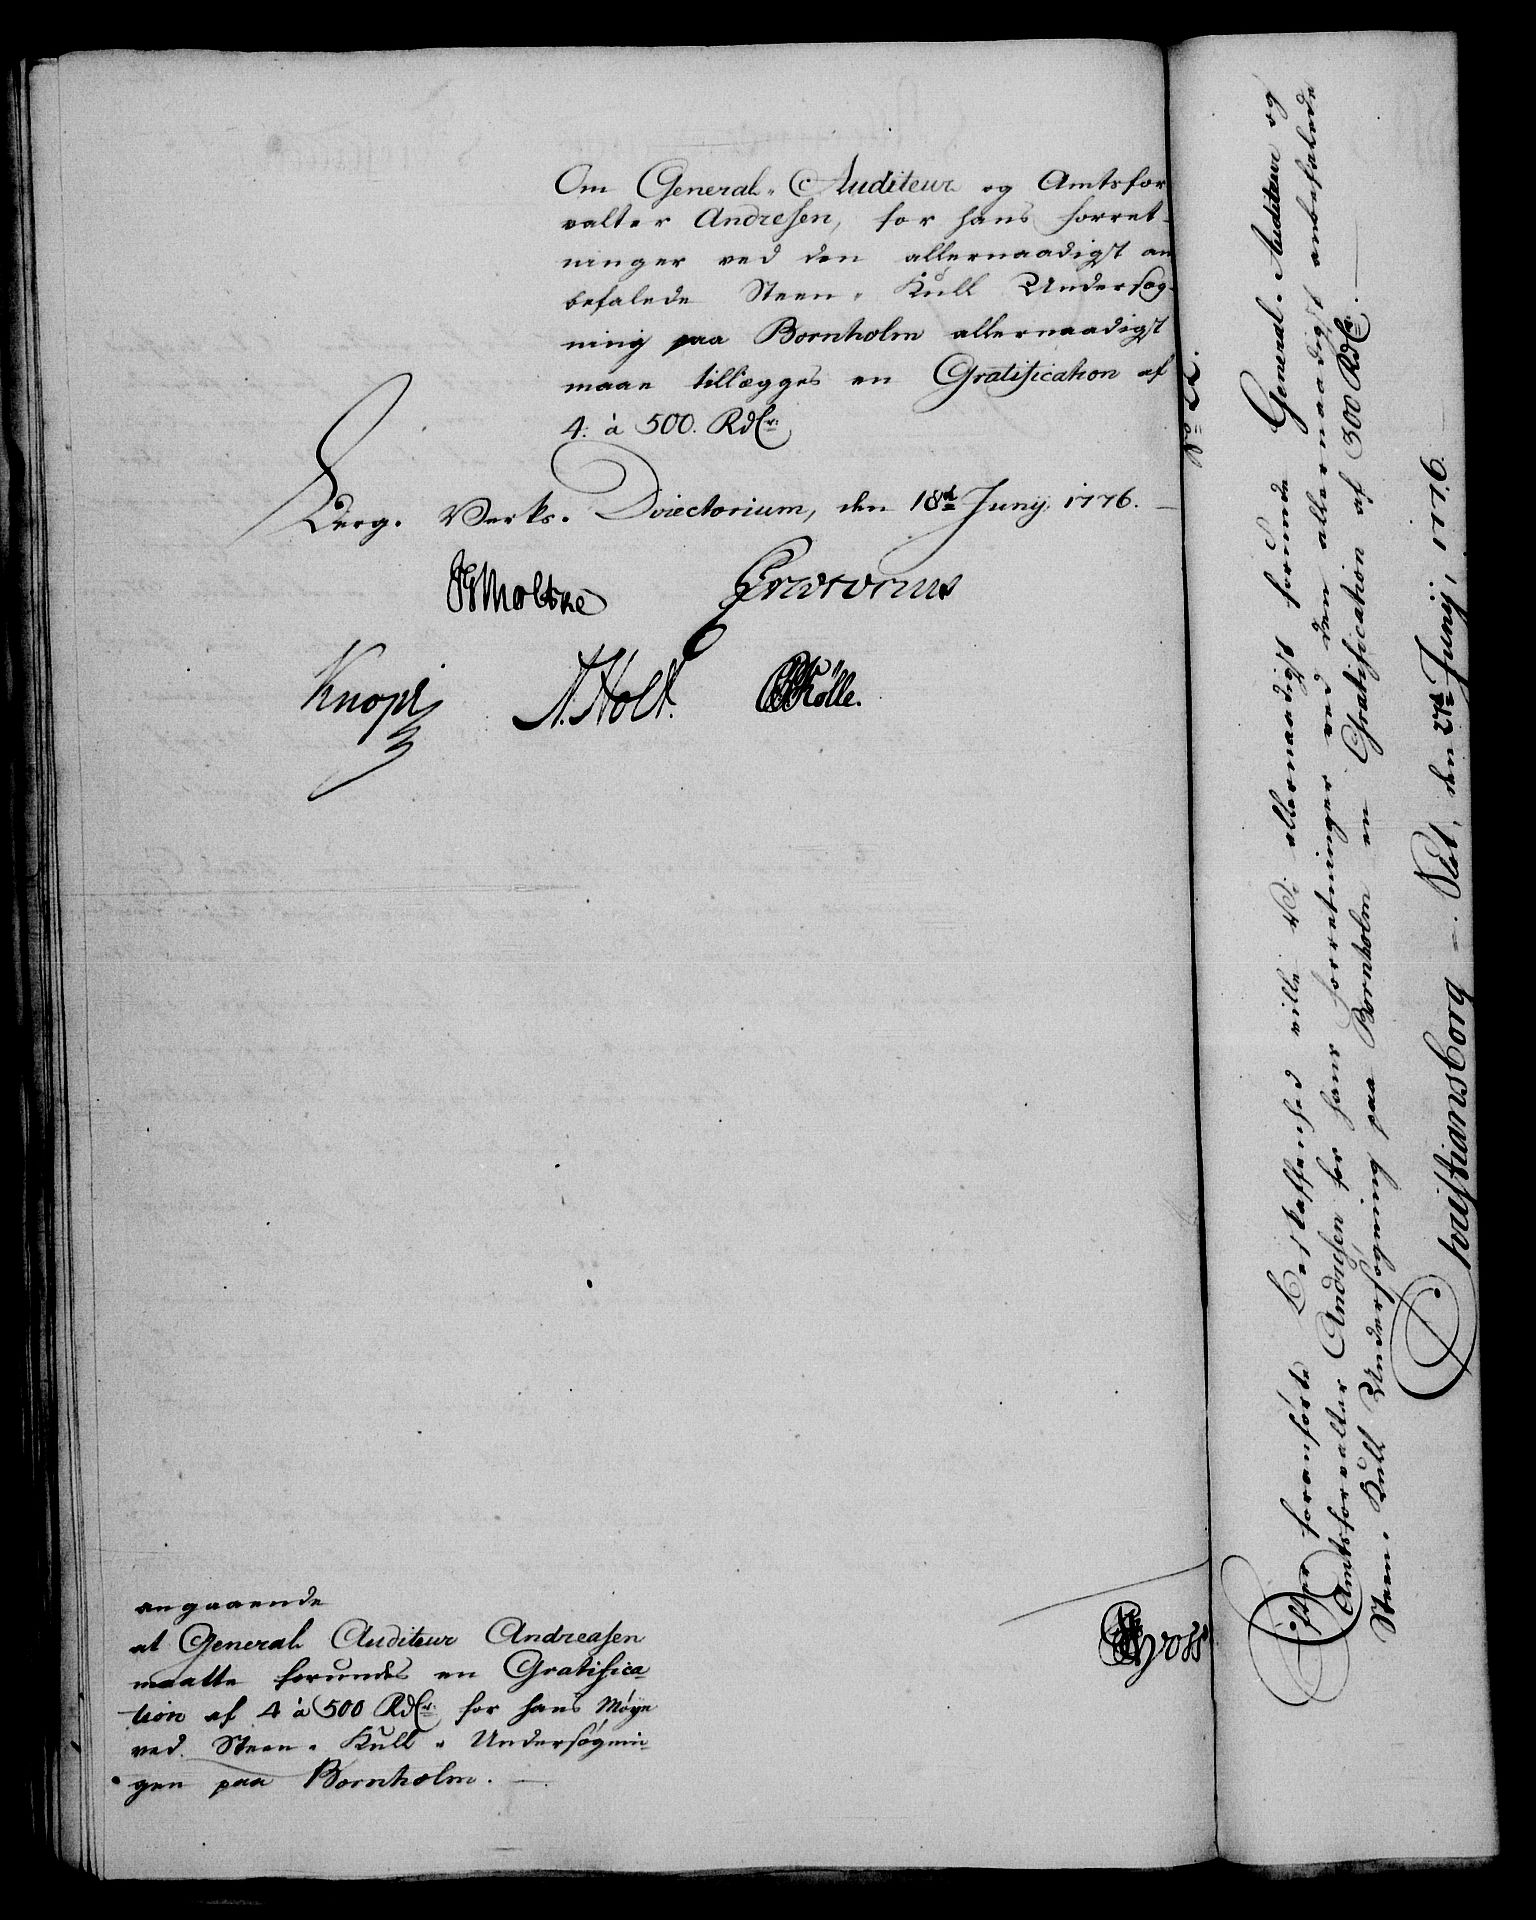 Om General-Auditeur og Amtsfor
valter Andresen, for hans forret-
ninger ved den allernaadigst an
befalede Steen-Kull Undersøg-
ning paa Bornholm allernaadigst
maae tillægges en Gratification af
4: à 500. Rdlr:
Berg-Verks-Directorium, den 18de Junij 1776.
JGMoltke Prætorius
Knoph A. Holt. Kølle.
angaaende
at General Auditeur Andreasen
maatte forundes en Gratifica
tion af 4 à 500 Rdlr: for hans Møye
ved Steen-Kull-Undersøgnin-
gen paa Bornholm.
No 22.
Efter foranførte Beskaffenhed ville Vi allernaadigst forunde General-Auditeur og
Amtsforvalter Andresen for hans forretninger ved den allernaadigst anbefalede
Steen-Kull Undersøgning paa Bornholm en Gratification af 300 Rdlr.
Christiansborg-Slot, den 27de Junij, 1776.